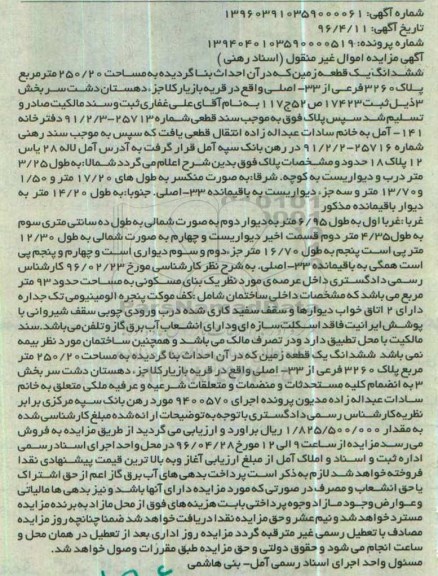 شماره آگهی: ۱۳۹۶۰۳۹۱۰۳۵۹۰۰۰۰۶۱
تاریخ آگهی: ۹۶/۴/۱۱
شماره پرونده: ۱۳۹۴۰۴۰۱۰۳۵۹۰۰۰۰۵۱۹
آگهی مزایده اموال غیر منقول (اسناد رهنی)
ششدانگ یک قطعه زمین که در آن احداث بنا گردیده به مساحت ۲۵۰/۲۰ مترمربع
پلاک ۳۲۶۰ فرعی از ۳۳- اصلی واقع در قریه بازیار کلا جز، دهستان دشت سر بخش
۳ ذیل ثبت ۱۷۴۲۳ ص ۵۲ ج ۱۱۷ به نام آقای علی غفاری ثبت و سند مالکیت صادر و
تسلیم شد سپس پلاک فوق به موجب سند قطعی شماره ۲۵۷۱۳-۹۱/۲/۳ دفترخانه
۱۴۱- آمل به خانم سادات عبداله زاده انتقال قطعی یافت که سپس به موجب سند رهنی
شماره ۲۵۷۱۶-۹۱/۲/۲ در رهن بانک سپه آمل قرار گرفت به آدرس آمل لاله ۲۸ یاس
۱۲ پلاک ۱۸ حدود و مشخصات پلاک فوق بدین شرح اعلام می گردد شمالا: به طول ۳/۲۵
متر درب و دیواریست به کوچه. شرقا: به صورت منکسر به طول های ۱۷/۲۰ متر و ۱/۵۰
و ۱۳/۷۰ متر و سه جز، دیواریست به باقیمانده ۳۳-اصلی. جنوبا: به طول ۱۴/۲۰ متر به
دیوار باقیمانده مذکور
غربا: غربا اول به طول ۶/۹۵ متر به دیوار دوم به صورت شمالی به طول ده سانتی متری سوم
به طول ۴/۳۵ متر دوم قسمت اخیر دیواریست و چهارم به صورت شمالی به طول ۱۲/۳۰
متر پی است پنجم به طول ۱۶/۷۰ متر جز، دوم و سوم دیواری است و چهارم و پنجم پی
است همگی به باقیمانده ۳۳-اصلی. به شرح نظر کارشناسی مورخ ۹۶/۰۲/۲۳ کارشناس
رسمی دادگستری داخل عرصه ی مورد نظر یک بنای مسکونی به مساحت حدود ۹۳ متر
مربع می باشد که مشخصات داخلی ساختمان شامل: کف موکت پنجره الومینیومی تک جداره
دارای ۲ اتاق خواب دیوارها و سقف سفید کاری شده درب ورودی چوبی سقف شیروانی با
پوشش ایرانیت فاقد اسکلت سازه ای و دارای انشعاب آب برق گاز و تلفن می باشد. سند
مالکیت با محل تطبیق دارد و در تصرف مالک می باشد و همچنین ساختمان مورد نظر بیمه
نمی باشد ششدانگ یک قطعه زمین که در آن احداث بنا گردیده به مساحت ۲۵۰/۲۰ متر
مربع پلاک ۳۲۶۰ فرعی از ۳۳- اصلی واقع در قریه بازیار کلا جز، دهستان دشت سر بخش
۳ به انضمام کلیه مستحدثات و منضمات و متعلقات شرعیه و عرفیه ملکی متعلق به خانم
سادات عبداله زاده مدیون پرونده اجرای ۹۴۰۰۵۷۰ مورد رهن بانک سپه مرکزی برابر
نظریه کارشناس رسمی دادگستری با توجه به توضیحات ارائه شده مبلغ کارشناسی شده
به مقدار ۱/۸۲۵/۵۰۰/۰۰۰ ریال براورد و ارزیابی می گردید از طریق مزایده به فروش
می رسد مزایده از ساعت ۹ الی ۱۲ مورخ ۹۶/۰۴/۲۸ در محل واحد اجرای اسناد رسمی
اداره ثبت و اسناد و املاک آمل از مبلغ ارزیابی آغاز و به بالا ترین قیمت پیشنهادی نقدا
فروخته خواهد شد لازم به ذکر است پرداخت بدهی های آب برق گاز اعم از حق اشتراک
یا حق انشعاب و مصرف در صورتی که مورد مزایده دارای آنها باشد و نیز بدهی ها مالیاتی
و عوارض وجود مازاد وجوه پرداختی بابت هزینه های فوق از محل مازاد به برنده مزایده
مسترد خواهد شد و نیم عشر و حق مزایده نقدا دریافت خواهد شد ضمنا چنانچه روز مزایده
مصادف با تعطیل رسمی غیر مترقبه گردد مزایده روز اداری بعد از تعطیل در همان محل و
ساعت انجام می شود و حقوق دولتی و حق مزایده طبق مقررات وصول خواهد شد.
مسئول واحد اجرای اسناد رسمی آمل- بنی هاشمی